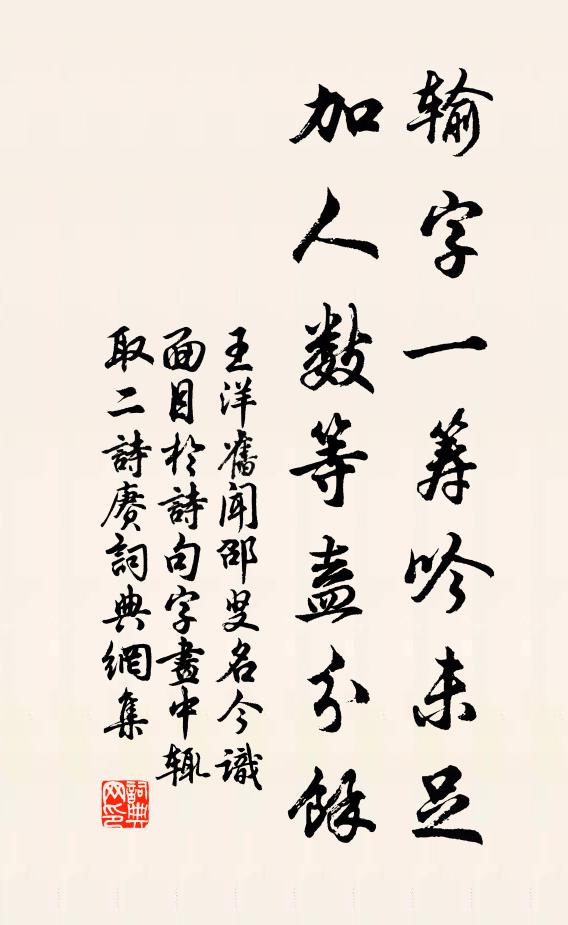 輸字一籌吟未足
加人數等盍分餘
王洋舊聞邵叟名今識
面目於詩句字畫中輒
取二詩賡詞典網集
詞典网印